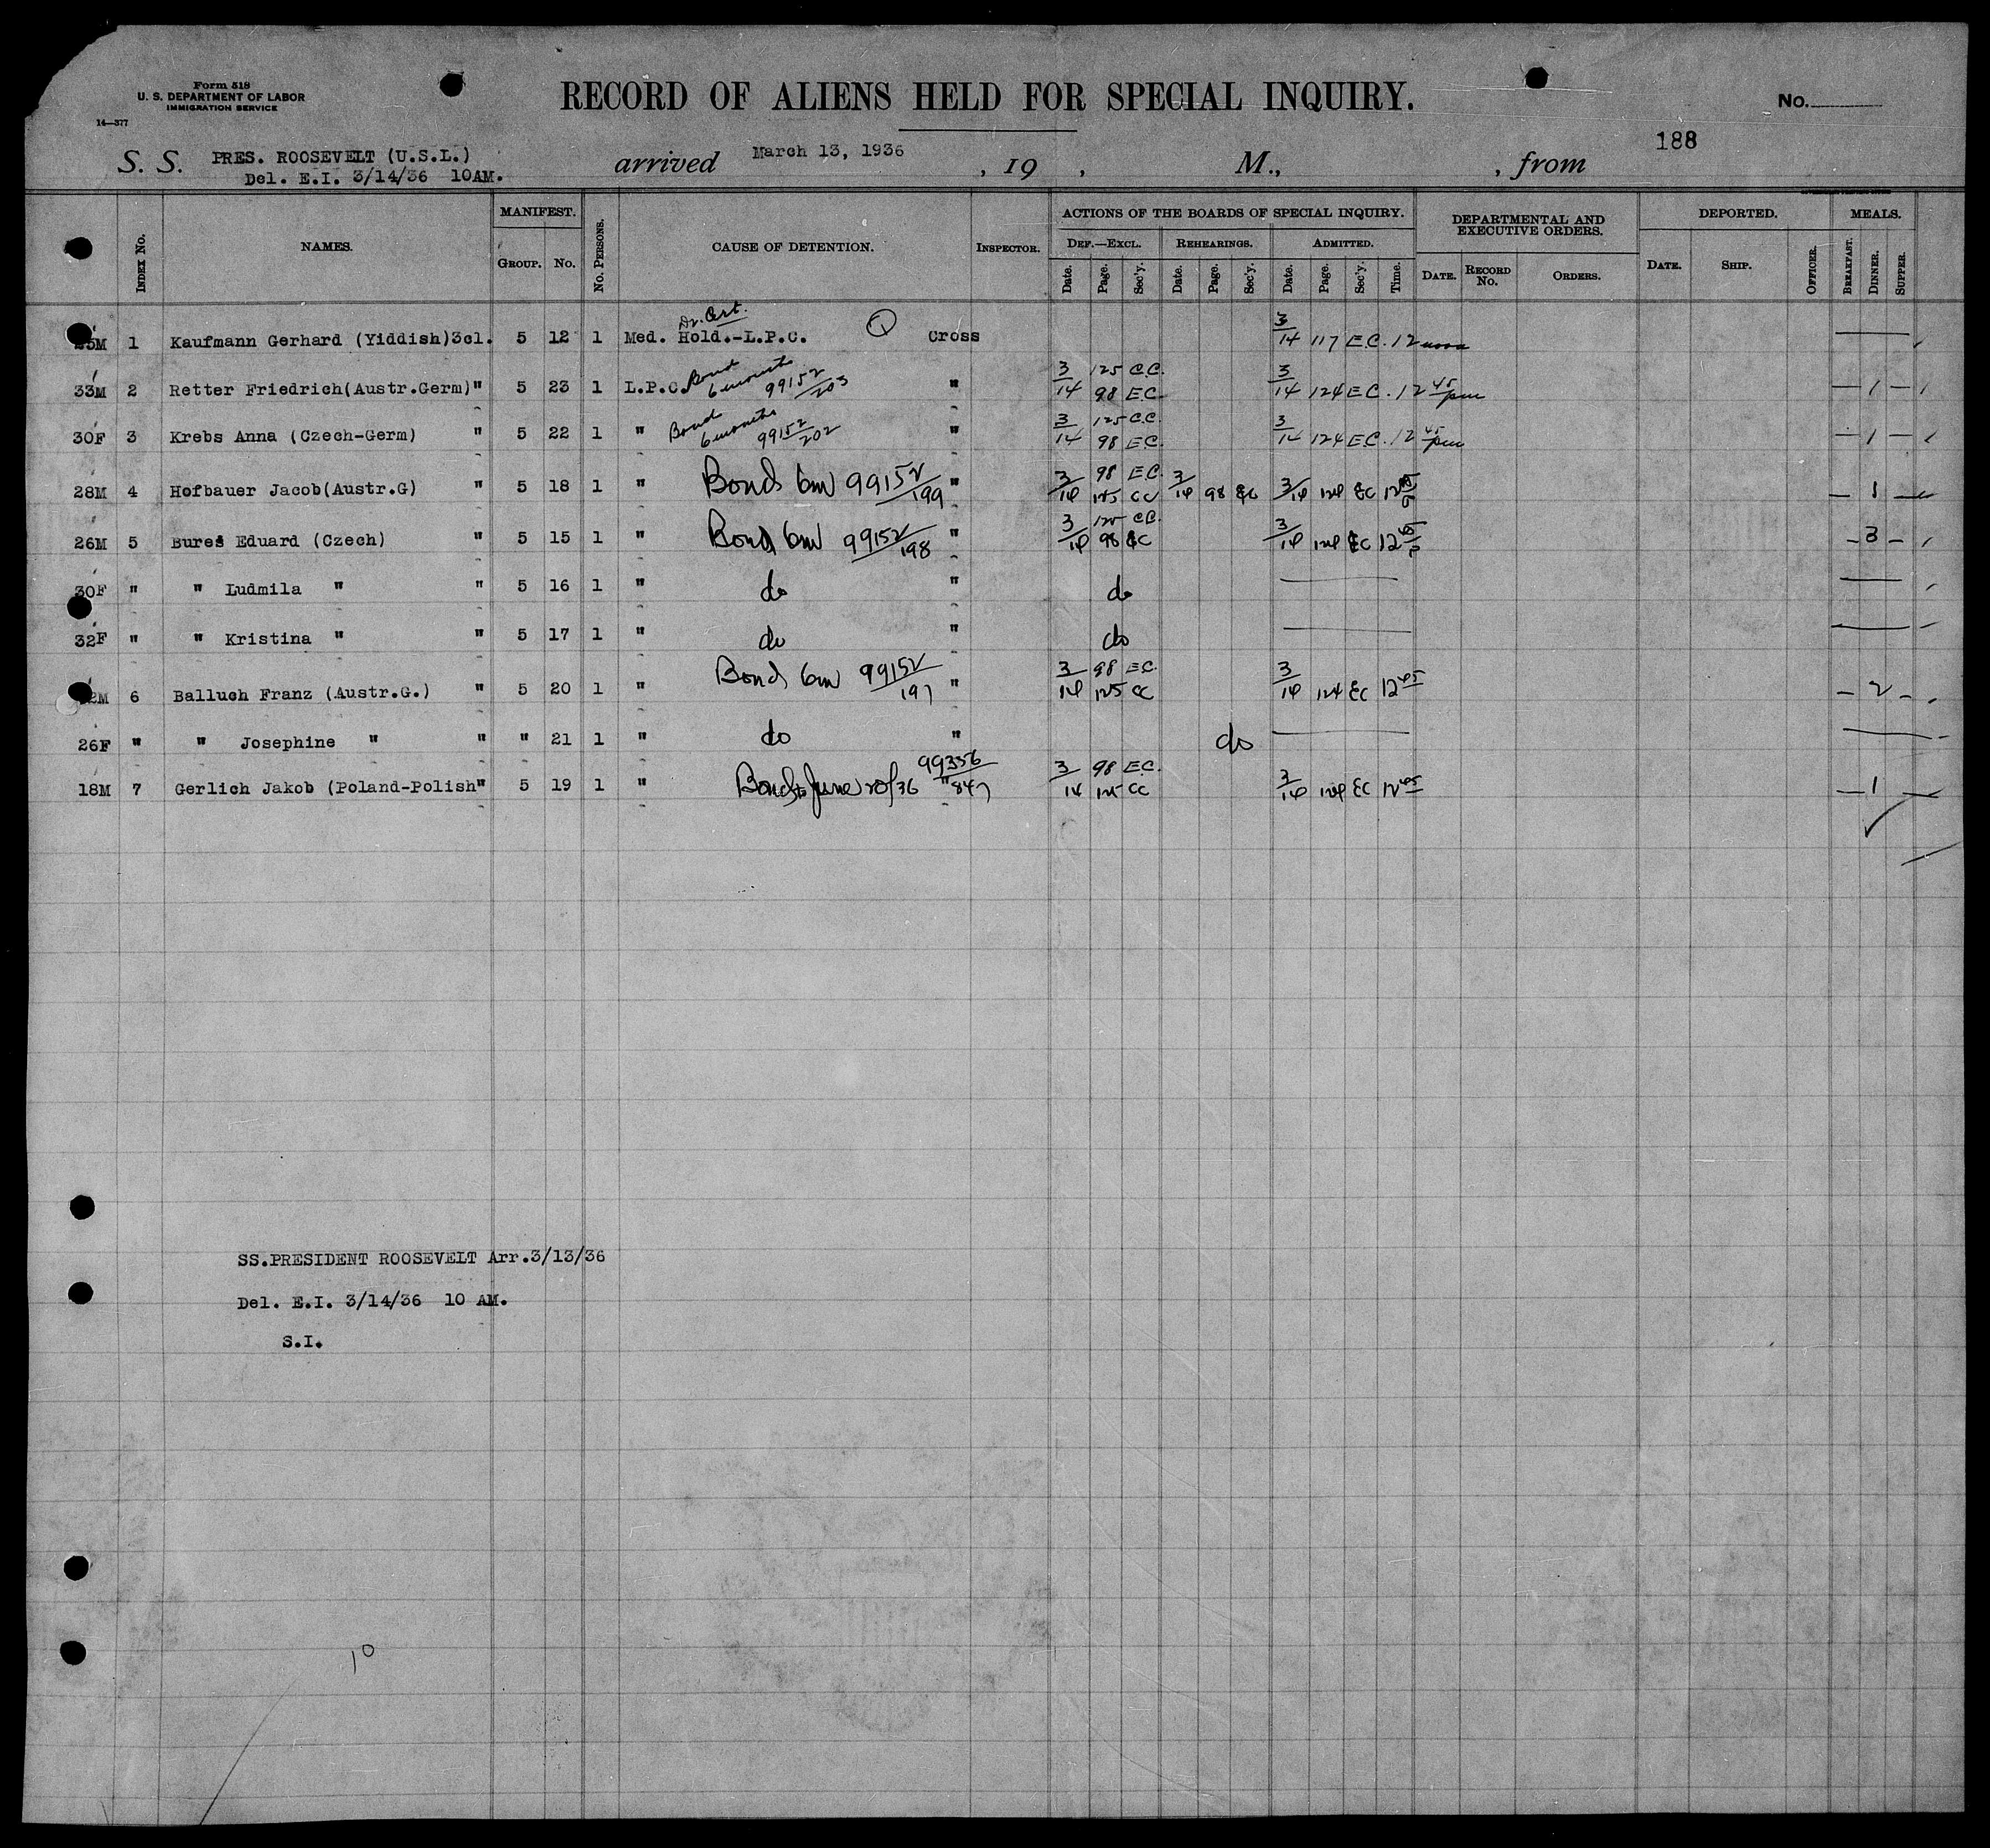 Form 518
U. S. DEPARTMENT OF LABOR
IMMIGRATION SERVICE
14—377
RECORD OF ALIENS HELD FOR SPECIAL INQUIRY.
No.
188
S. S. PRES. ROOSEVELT (U.S.L.) arrived March 13, 1936 , 19 , M., , from
Del. E.I. 3/14/36 10AM.
INDEX No. NAMES. MANIFEST. GROUP. No. No. PERSONS. CAUSE OF DETENTION. INSPECTOR. ACTIONS OF THE BOARDS OF SPECIAL INQUIRY. DEF.—EXCL. Date. Page. Sec'y. REHEARINGS. Date. Page. Sec'y. ADMITTED. Date. Page. Sec'y. Time. DEPARTMENTAL AND EXECUTIVE ORDERS. DATE. RECORD No. ORDERS. DEPORTED. DATE. SHIP. OFFICER. MEALS. BREAKFAST. DINNER. SUPPER.
Dr. Cert.
M 1 Kaufmann Gerhard (Yiddish)3cl. 5 12 1 Med. Hold.-L.P.C. Q Cross 3/14 117 E.C. 12 noon
33M 2 Retter Friedrich(Austr.Germ)" 5 23 1 L.P.C. Bond 6 months 99152/203 " 3/14 125 C.C. 98 E.C. 3/14 124 E.C. 12 45 pm — 1 —
30F 3 Krebs Anna (Czech-Germ) " 5 22 1 " Bond 6 months 99152/202 " 3/14 125 C.C. 98 E.C. 3/14 124 E.C. 12 45 pm — 1 —
28M 4 Hofbauer Jacob(Austr.G) " 5 18 1 " Bond 6m 99152/199 " 3/14 98 E.C. 125 CC 3/14 98 EC 3/14 124 EC 12 45 p — 1 —
26M 5 Bures Eduard (Czech) " 5 15 1 " Bond 6m 99152/198 " 3/14 125 C.C. 98 EC 3/14 124 EC 12 45 p — 3 —
30F " " Ludmila " " 5 16 1 " do " do
32F " " Kristina " " 5 17 1 " do " do
2M 6 Balluch Franz (Austr.G.) " 5 20 1 " Bond 6m 99152/197 " 3/14 98 E.C. 125 CC 3/14 124 EC 12 45 — 2 —
26F " " Josephine " " " 21 1 " do " do
18M 7 Gerlich Jakob (Poland-Polish" 5 19 1 " Bond to June 20/36 99356/847 " 3/14 98 E.C. 125 CC 3/14 124 EC 12 45 — 1 —
SS.PRESIDENT ROOSEVELT Arr.3/13/36
Del. E.I. 3/14/36 10 AM.
S.I.
10